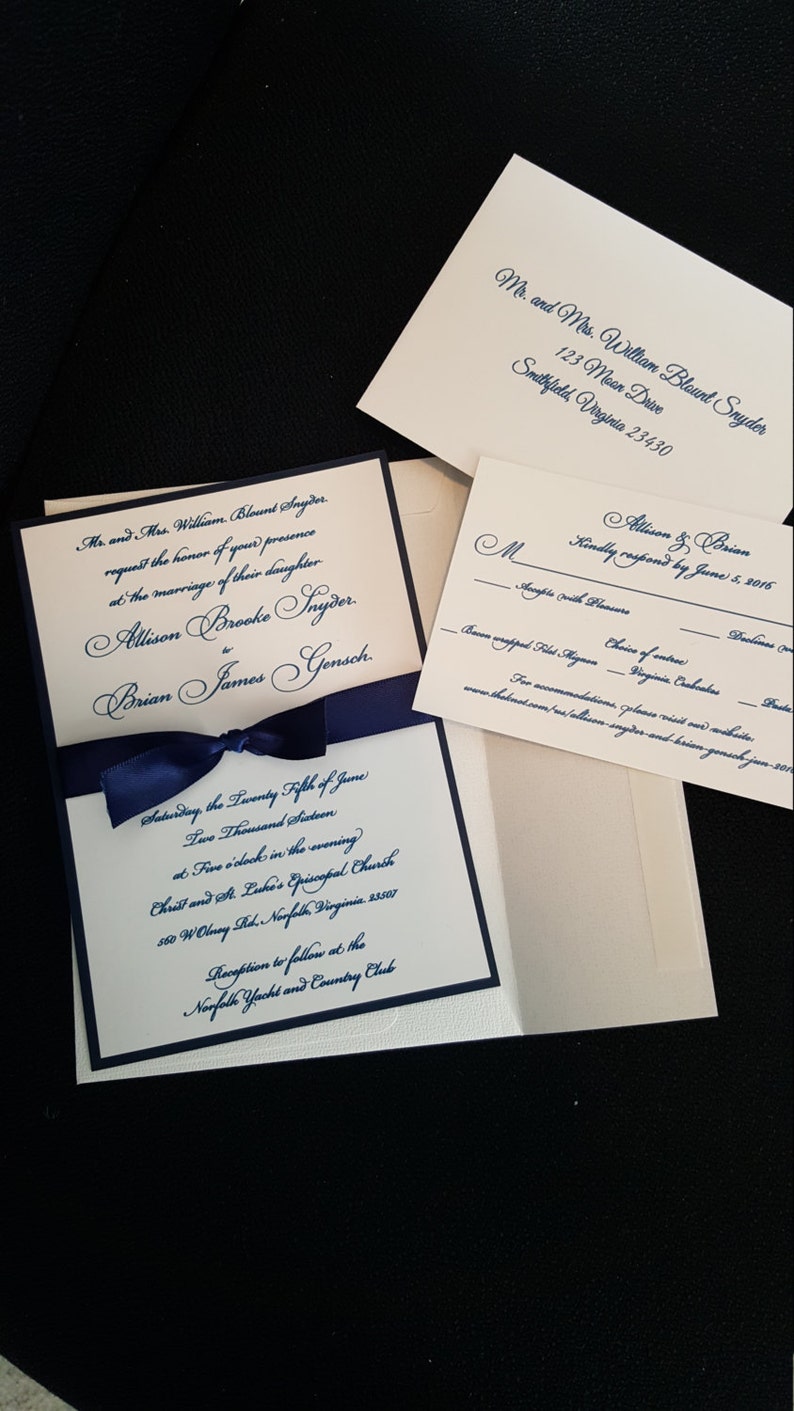 Mr. and Mrs. William Blount Snyder
123 Moon Drive
Smithfield, Virginia 23430
Mr. and Mrs. William. Blount Snyder.
request the honor of your presence
at the marriage of their daughter
Allison Brooke Snyder.
to
Brian James Gensch.
Saturday, the Twenty Fifth of June
Two Thousand Sixteen
at Five o'clock in the evening
Christ and St. Luke's Episcopal Church
560 W Olney Rd., Norfolk, Virginia. 23507
Reception to follow at the
Norfolk Yacht and Country Club
Allison & Brian
Kindly respond by June 5, 2016
M
Accepts with Pleasure Declines
Choice of entree
Bacon wrapped Filet Mignon Virginia Crabcakes Pasta
For accommodations, please visit our website:
www.theknot.com/us/allison-snyder-and-brian-gensch-jun-2016